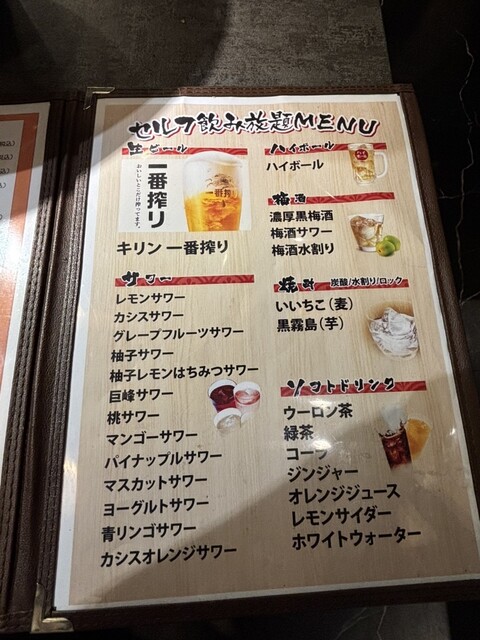 セルフ飲み放題MENU
生ビール
一番搾り
おいしいとこだけ搾ってます。
一番搾り
キリン 一番搾り
サワー
レモンサワー
カシスサワー
グレープフルーツサワー
柚子サワー
柚子レモンはちみつサワー
巨峰サワー
桃サワー
マンゴーサワー
パイナップルサワー
マスカットサワー
ヨーグルトサワー
青リンゴサワー
カシスオレンジサワー
ハイボール
ハイボール
梅酒
濃厚黒梅酒
梅酒サワー
梅酒水割り
焼酎 炭酸/水割り/ロック
いいちこ(麦)
黒霧島(芋)
ソフトドリンク
ウーロン茶
緑茶
コーラ
ジンジャー
オレンジジュース
レモンサイダー
ホワイトウォーター